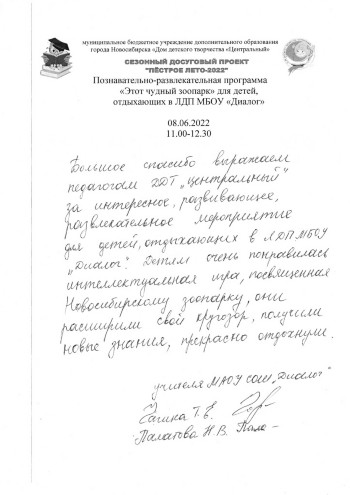 муниципальное бюджетное учреждение дополнительного образования
города Новосибирска «Дом детского творчества «Центральный»
СЕЗОННЫЙ ДОСУГОВЫЙ ПРОЕКТ
"ПЁСТРОЕ ЛЕТО-2022"
Познавательно-развлекательная программа
«Этот чудный зоопарк» для детей,
отдыхающих в ЛДП МБОУ «Диалог»
08.06.2022
11.00-12.30
Большое спасибо выражаем
педагогам ДДТ „Центральный"
за интересное, развивающее,
развлекательное мероприятие
для детей, отдыхающих в ЛДП МБОУ
„Диалог". Детям очень понравилась
интеллектуальная игра, посвященная
Новосибирскому зоопарку, они
расширили свой кругозор, получили
новые знания, прекрасно отдохнули.
учителя МАОУ сош „Диалог"
Т.В.
Палатова Н.В.